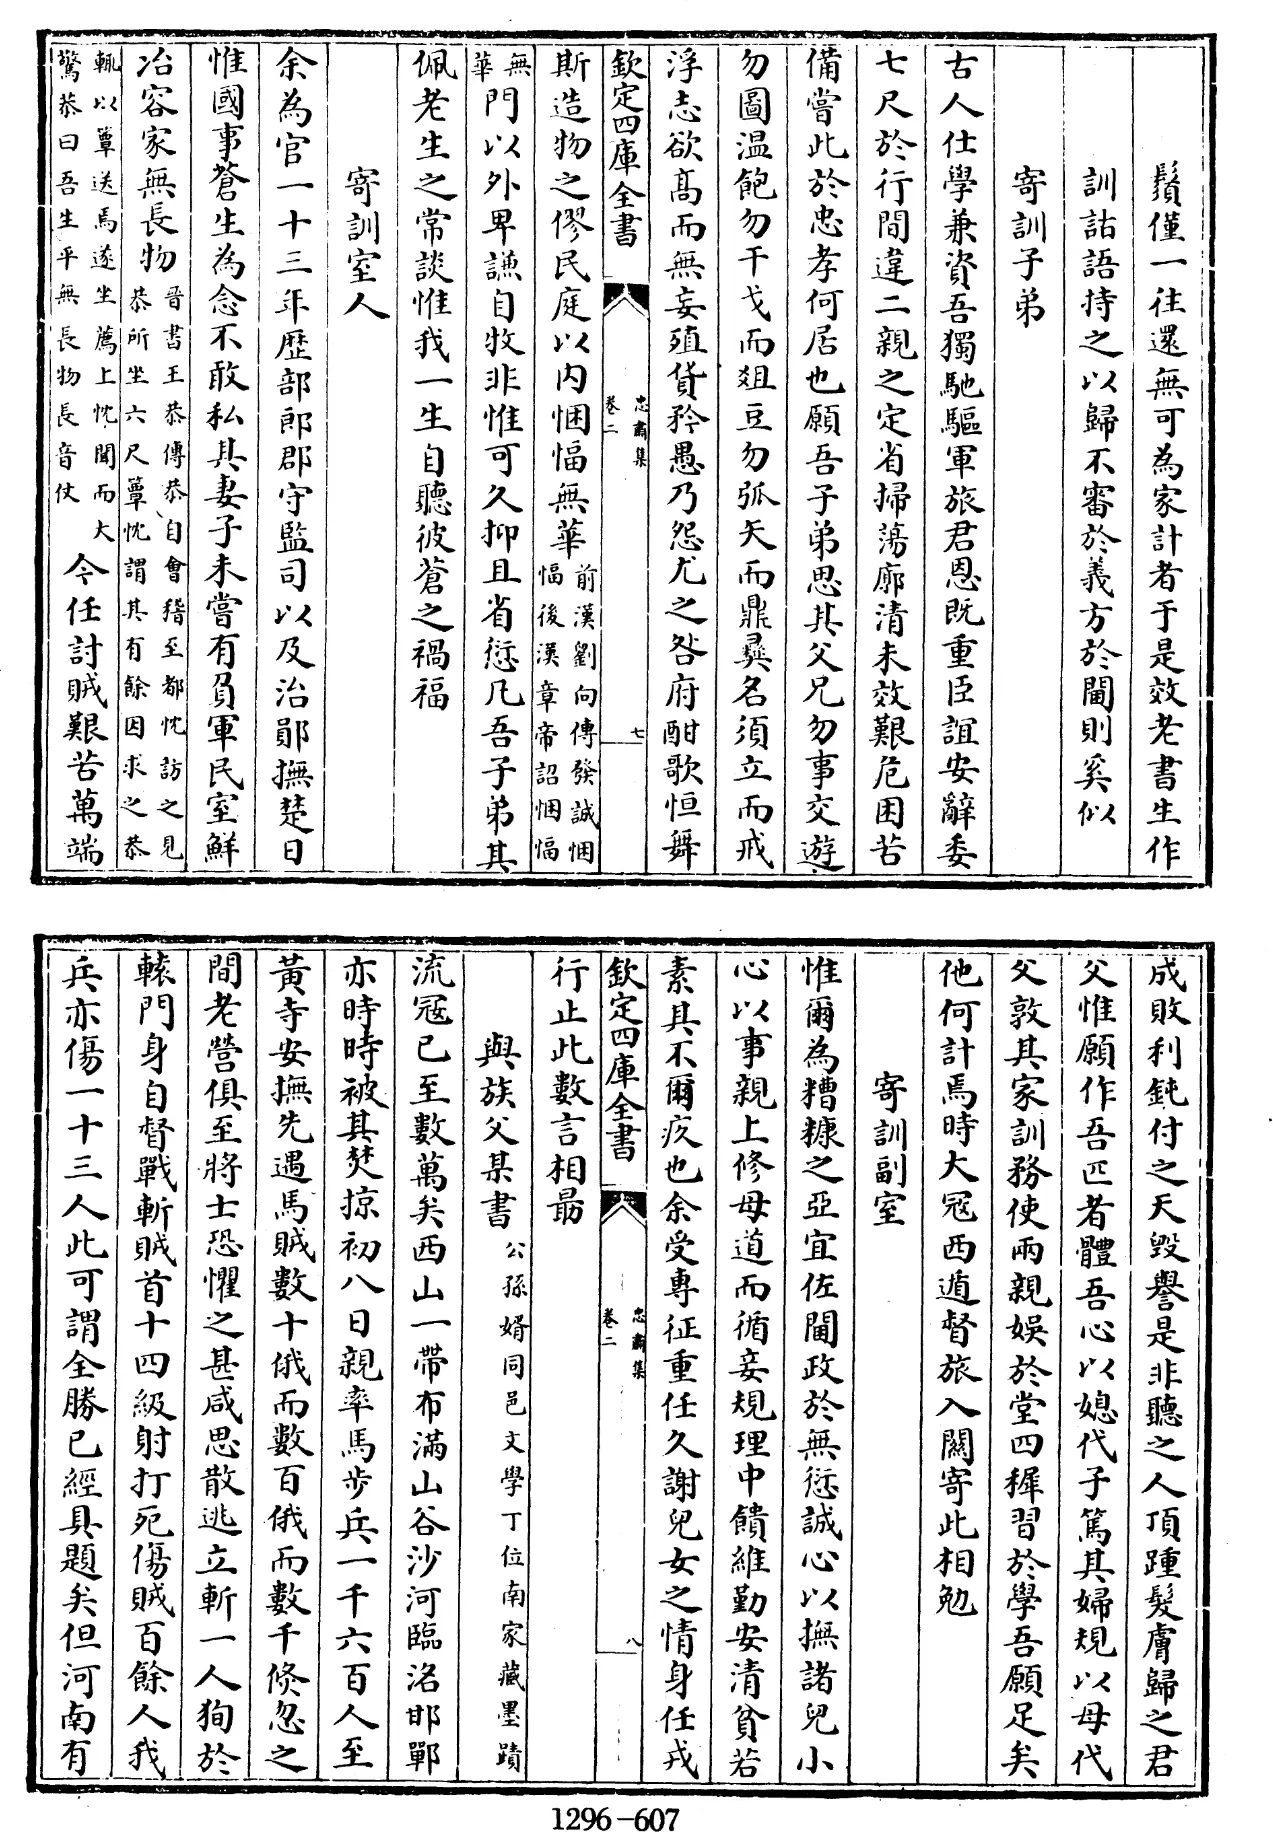 鬚僅一往還無可為家計者于是效老書生作
訓詁語持之以歸不審於義方於閫則奚似
寄訓子弟
古人仕學兼資吾獨馳驅軍旅君恩既重臣誼安辭委
七尺於行間違二親之定省掃蕩廓清未效艱危困苦
備嘗此於忠孝何居也願吾子弟思其父兄勿事交遊
勿圖温飽勿干戈而爼豆勿弧矢而鼎彛名須立而戒
浮志欲髙而無妄殖貨矜愚乃怨尤之咎府酣歌恒舞
欽定四庫全書
忠肅集
卷二
七
斯造物之僇民庭以内悃愊無華
前漢劉向傳發誠悃
愊後漢章帝詔悃愊
無
華
門以外卑謙自牧非惟可久抑且省愆凡吾子弟其
佩老生之常談惟我一生自聽彼蒼之禍福
寄訓室人
余為官一十三年歴部郎郡守監司以及治鄖撫楚日
惟國事蒼生為念不敢私其妻子未嘗有負軍民室鮮
冶容家無長物
晉書王恭傳恭自會稽至都忱訪之見
恭所坐六尺簟忱謂其有餘因求之恭
輒以簟送焉遂坐薦上忱聞而大
驚恭曰吾生平無長物長音仗
今任討賊艱苦萬端
成敗利鈍付之天毀譽是非聽之人頂踵髮膚歸之君
父惟願作吾匹者體吾心以媳代子篤其婦規以母代
父敦其家訓務使兩親娛於堂四穉習於學吾願足矣
他何計焉時大冦西遁督旅入關寄此相勉
寄訓副室
惟爾為糟糠之亞宜佐閫政於無愆誠心以撫諸兒小
心以事親上修母道而循妾規理中饋維勤安清貧若
素其不爾疚也余受專征重任久謝兒女之情身任戎
欽定四庫全書
忠肅集
卷二
八
行止此數言相朂
與族父某書
公孫婿同邑文學丁位南家藏墨蹟
流冦已至數萬矣西山一帶布滿山谷沙河臨洺邯鄲
亦時時被其焚掠初八日親率馬歩兵一千六百人至
黃寺安撫先遇馬賊數十俄而數百俄而數千倐忽之
間老營俱至將士恐懼之甚咸思散逃立斬一人狥於
轅門身自督戰斬賊首十四級射打死傷賊百餘人我
兵亦傷一十三人此可謂全勝已經具題矣但河南有
1296-607